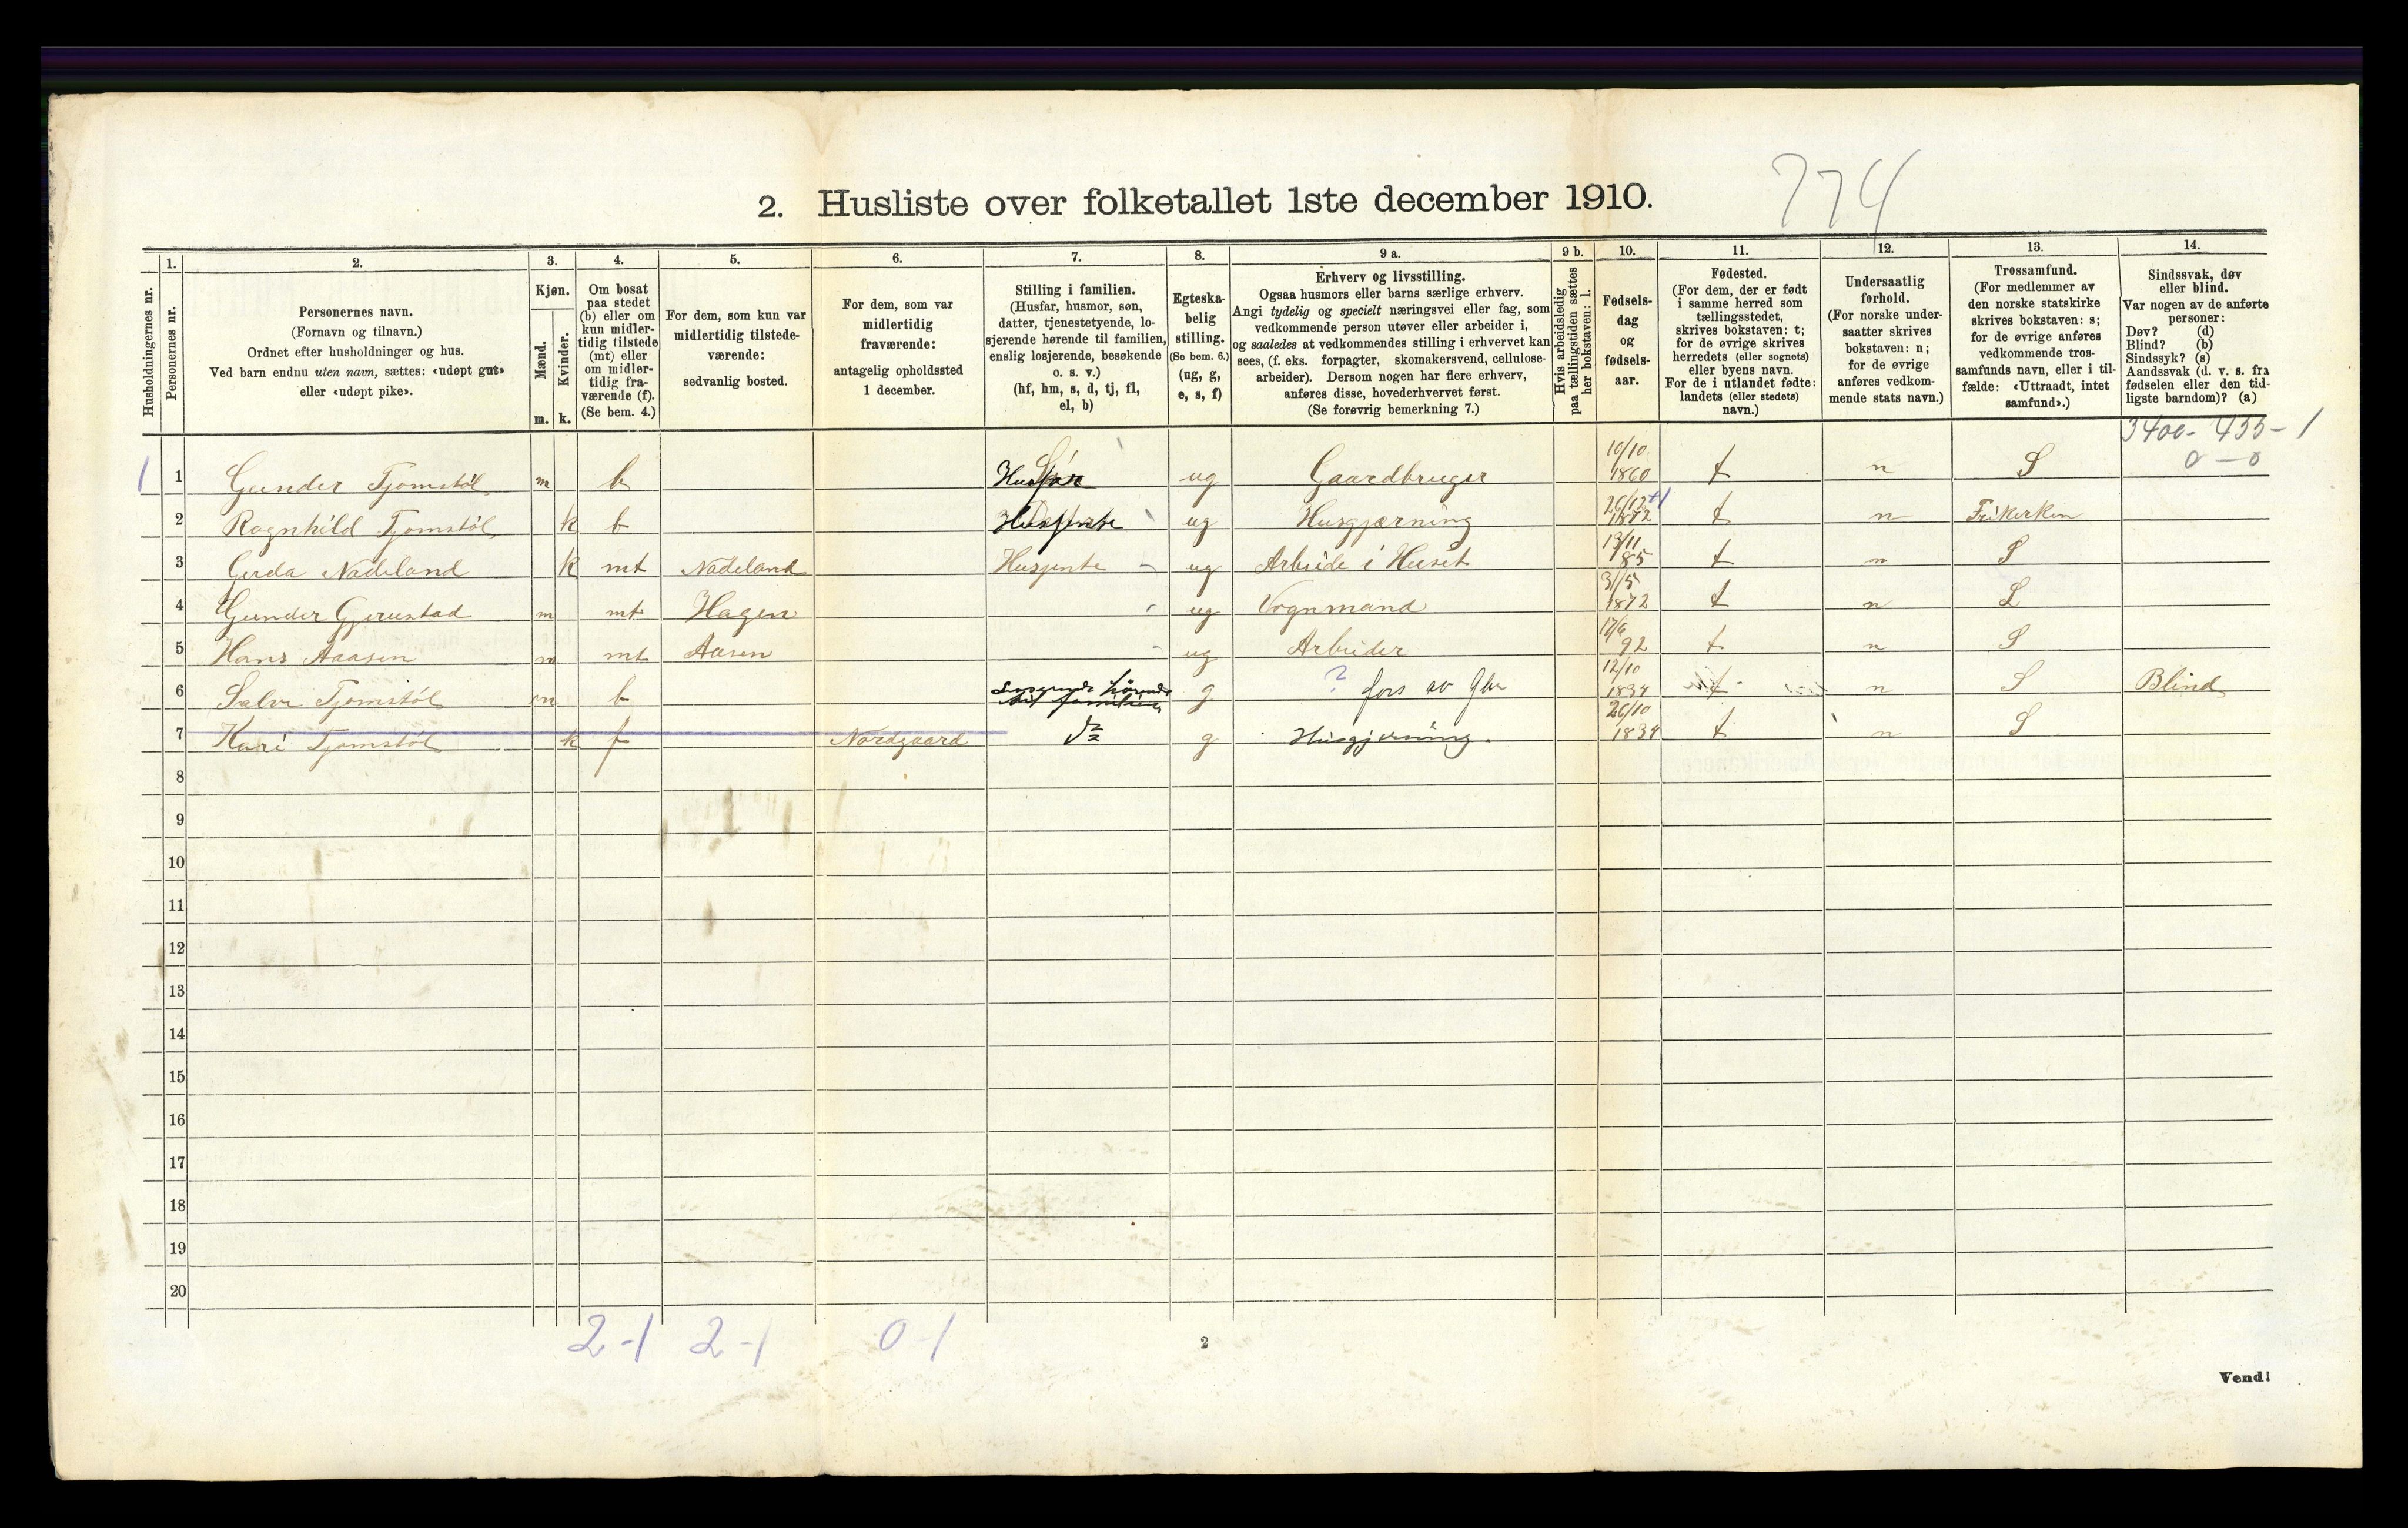 774
2. Husliste over folketallet 1ste december 1910.
Husholdningernes nr.
1. Personernes nr.
2. Personernes navn. (Fornavn og tilnavn.) Ordnet efter husholdninger og hus. Ved barn endnu uten navn, sættes: «udøpt gut» eller «udøpt pike».
3. Kjøn. Mænd. m. Kvinder. k.
4. Om bosat paa stedet (b) eller om kun midler-tidig tilstede (mt) eller om midler-tidig fra-værende (f). (Se bem. 4.)
5. For dem, som kun var midlertidig tilstede-værende: sedvanlig bosted.
6. For dem, som var midlertidig fraværende: antagelig opholdssted 1 december.
7. Stilling i familien. (Husfar, husmor, søn, datter, tjenestetyende, lo-sjerende hørende til familien, enslig losjerende, besøkende o. s. v.) (hf, hm, s, d, tj, fl, el, b)
8. Egteska-belig stilling. (Se bem. 6.) (ug, g, e, s, f)
9 a. Erhverv og livsstilling. Ogsaa husmors eller barns særlige erhverv. Angi tydelig og specielt næringsvei eller fag, som vedkommende person utøver eller arbeider i, og saaledes at vedkommendes stilling i erhvervet kan sees, (f. eks. forpagter, skomakersvend, cellulose-arbeider). Dersom nogen har flere erhverv, anføres disse, hovederhvervet først. (Se forøvrig bemerkning 7.)
9 b. Hvis arbeidsledig paa tællingstiden sættes her bokstaven: l.
10. Fødsels-dag og fødsels-aar.
11. Fødested. (For dem, der er født i samme herred som tællingsstedet, skrives bokstaven: t; for de øvrige skrives herredets (eller sognets) eller byens navn. For de i utlandet fødte: landets (eller stedets) navn.)
12. Undersaatlig forhold. (For norske under-saatter skrives bokstaven: n; for de øvrige anføres vedkom-mende stats navn.)
13. Trossamfund. (For medlemmer av den norske statskirke skrives bokstaven: s; for de øvrige anføres vedkommende tros-samfunds navn, eller i til-fælde: «Uttraadt, intet samfund».)
14. Sindssvak, døv eller blind. Var nogen av de anførte personer: Døv? (d) Blind? (b) Sindssyk? (s) Aandssvak (d. v. s. fra fødselen eller den tid-ligste barndom)? (a)
3400 - 455 - 1
0 - 0
1 1 Gunder Tjomstøl m b ug Gaardbruger 10/10 1860 t n S
2 Ragnhild Tjomstøl k b Husjente ug Husgjærning 26/12 1872 t n Frikerken
3 Gerda Nadeland k mt Nadeland Husjente ug Arbeide i Huset 13/11 85 t n S
4 Gunder Gjerustad m mt Hagen ug Vognmand 3/5 1872 t n S
5 Hans Aaasen m mt Aasen ug Arbeider 17/6 92 t n S
6 Salve Tjomstøl m b g ? fors av gbr 12/10 1834 t n S Blind
7 Kari Tjomstøl k f Nordgaard g Husgjerning. 26/10 1834 t n S
8
9
10
11
12
13
14
15
16
17
18
19
20
2-1 2-1 0-1
2
Vend!